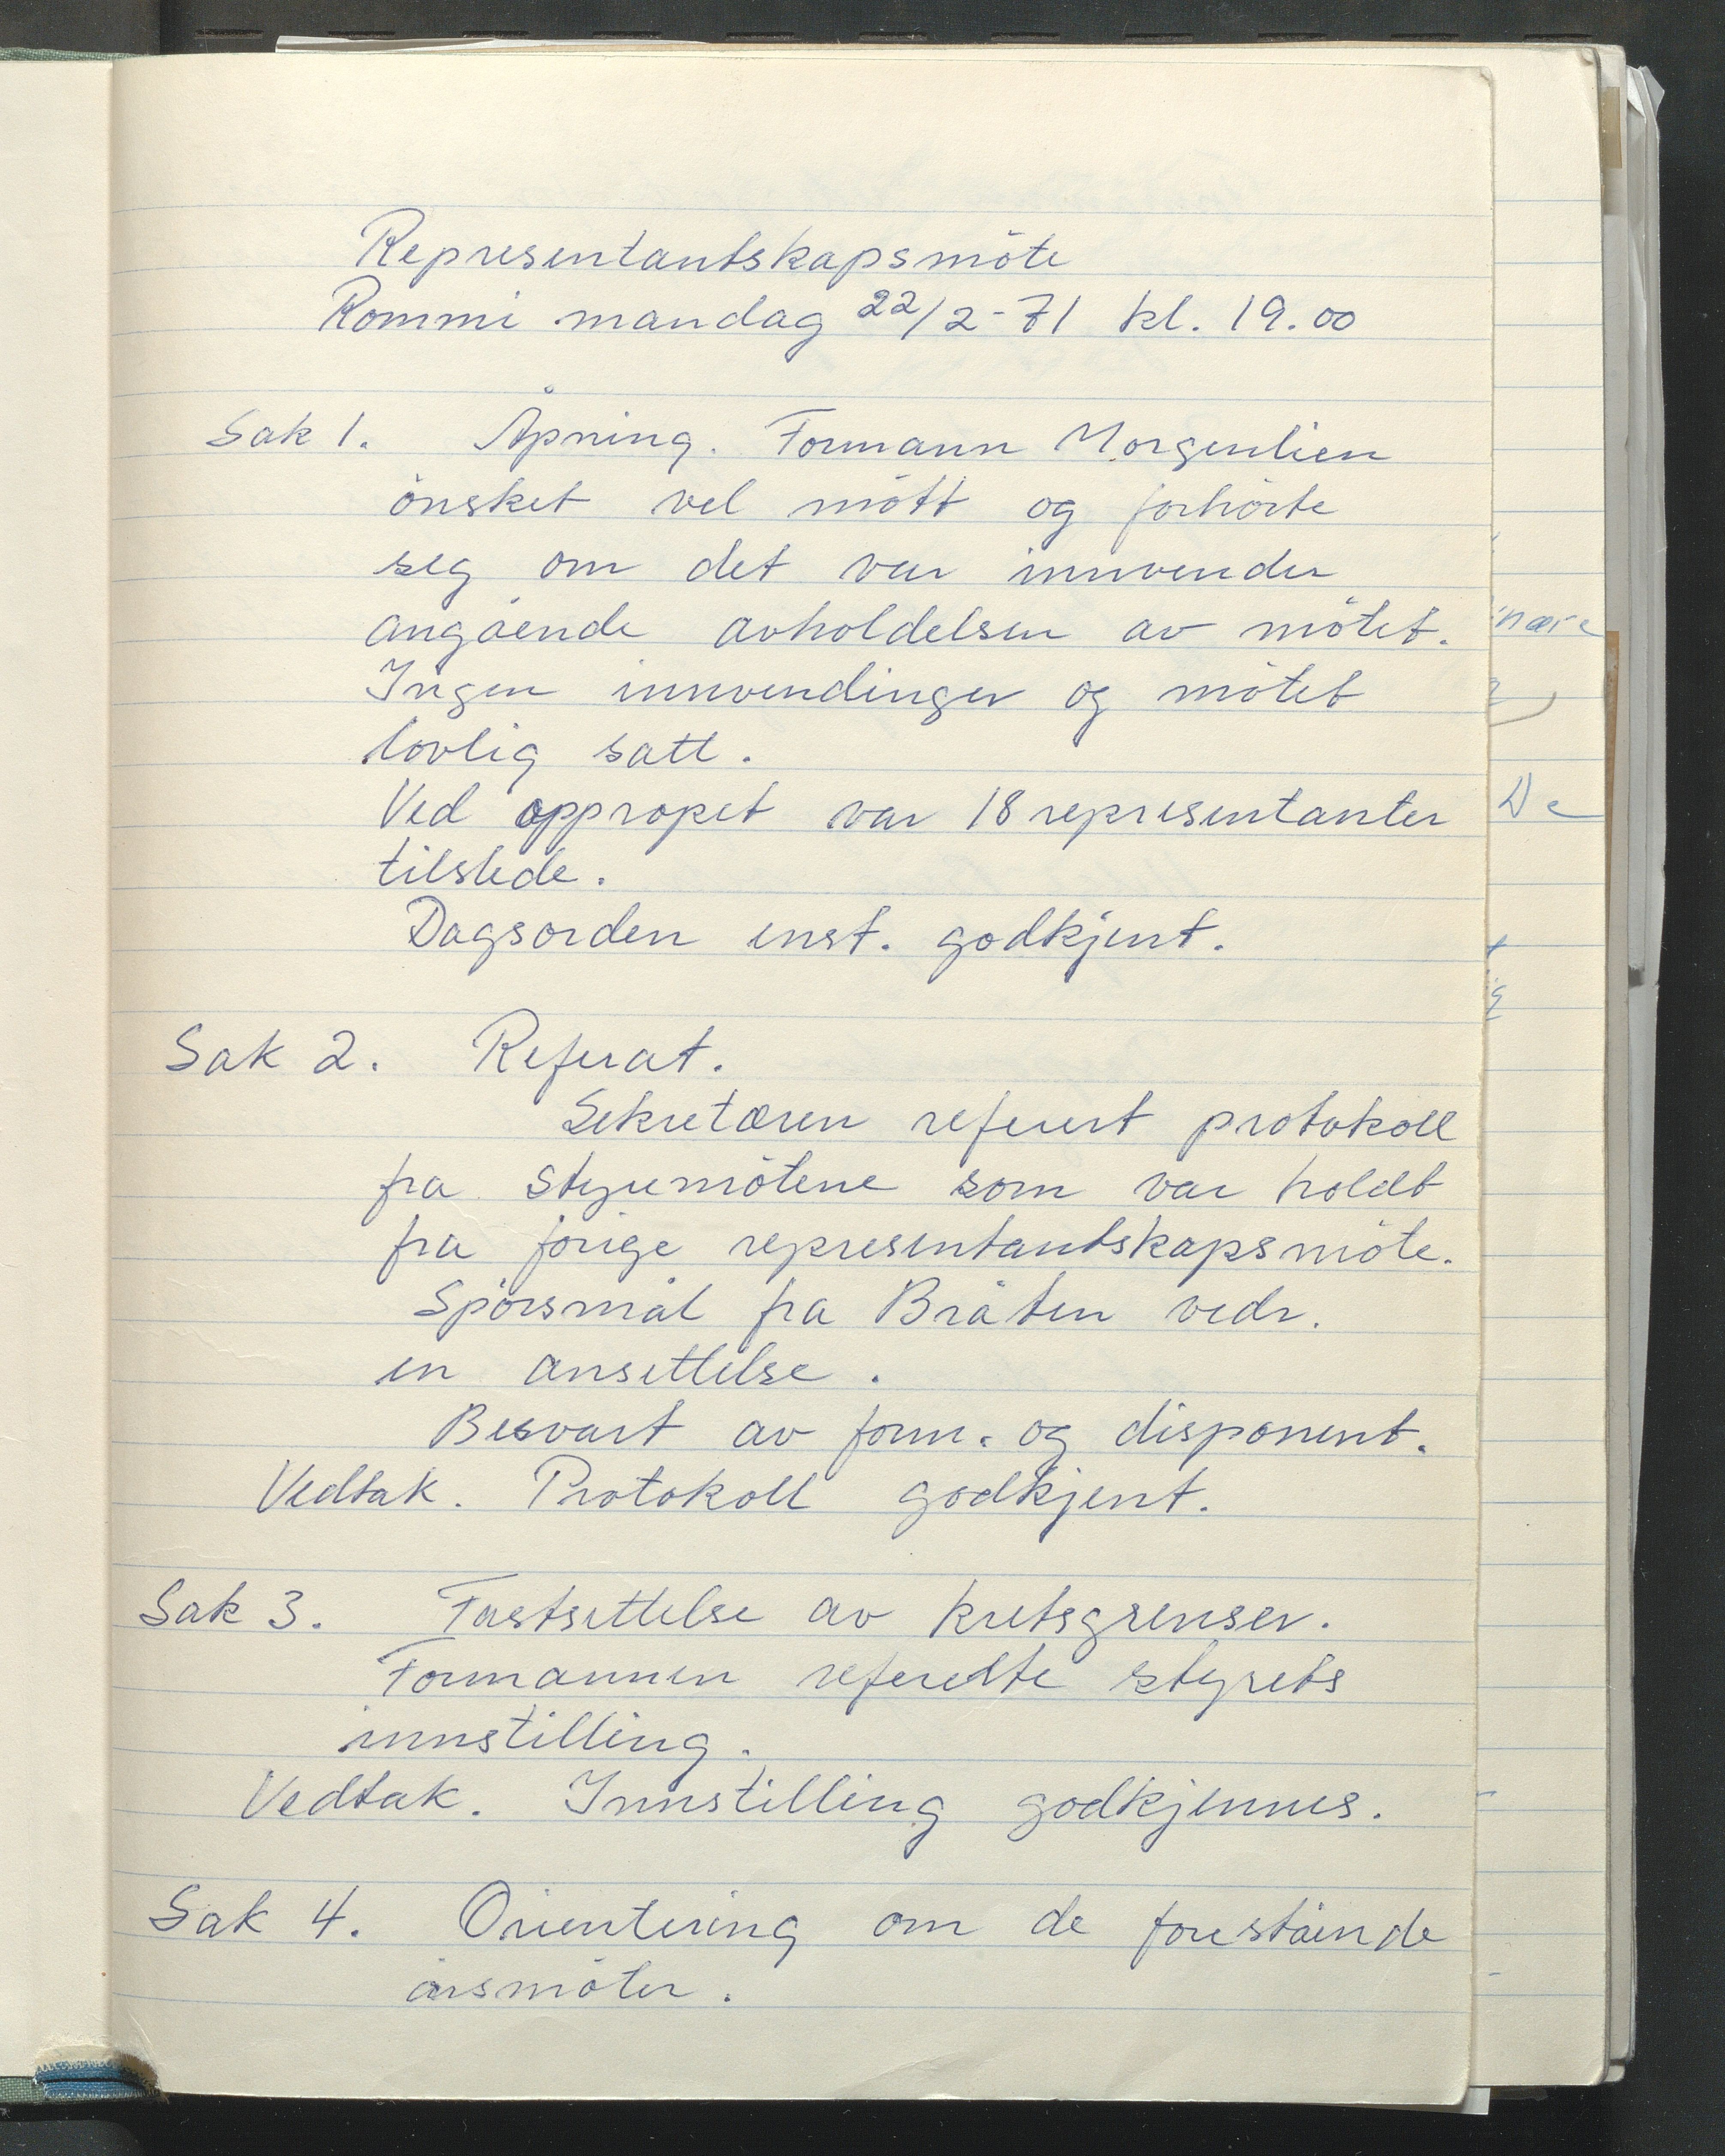 Representantskapsmöte
Rommi mandag 22/2-71 kl. 19.00
Sak 1. Åpning. Formann Morgenlien
önsket vel mött og forhörte
seg om det var innvender
angående avholdelsen av mötet.
Ingen innvendinger og mötet
lovlig satt.
Ved oppropet var 18 representanter
tilstede.
Dagsorden enst. godkjent.
Sak 2. Referat.
Sekretæren referert protokoll
fra styremötene som var holdt
fra forige representantskapsmöte.
Spörsmål fra Bråten vedr.
en ansettelse.
Besvart av form. og disponent.
Vedtak. Protokoll godkjent.
Sak 3. Fastsettelse av kretsgrenser.
Formannen refererte styrets
innstilling.
Vedtak. Innstilling godkjennes.
Sak 4. Orientering om de forestående
årsmöter.
De